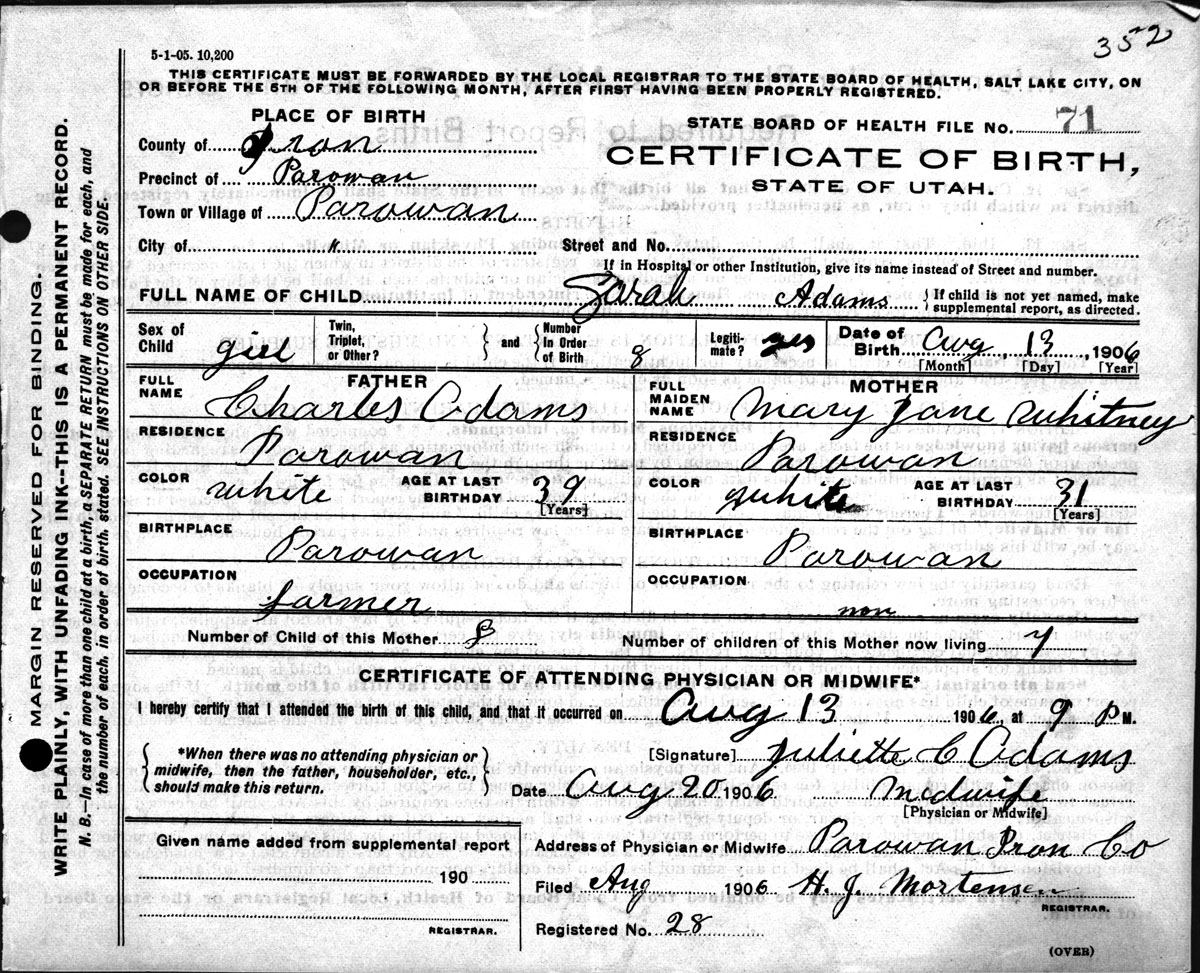 352
5-1-05. 10,200
THIS CERTIFICATE MUST BE FORWARDED BY THE LOCAL REGISTRAR TO THE STATE BOARD OF HEALTH, SALT LAKE CITY, ON
OR BEFORE THE 5TH OF THE FOLLOWING MONTH, AFTER FIRST HAVING BEEN PROPERLY REGISTERED.
PLACE OF BIRTH
County of Iron
Precinct of Parowan
Town or Village of Parowan
City of "
STATE BOARD OF HEALTH FILE NO. 71
CERTIFICATE OF BIRTH,
STATE OF UTAH.
Street and No.
If in Hospital or other Institution, give its name instead of Street and number.
FULL NAME OF CHILD Sarah Adams { If child is not yet named, make
supplemental report, as directed.
Sex of Child girl Twin, Triplet, or Other? } and { Number in Order of Birth 8 Legiti-mate? yes Date of Birth Aug, 13, 1906
[Month] [Day] [Year]
FATHER
FULL NAME Charles Adams
RESIDENCE Parowan
COLOR white AGE AT LAST BIRTHDAY 39
[Years]
BIRTHPLACE Parowan
OCCUPATION farmer
MOTHER
FULL MAIDEN NAME Mary Jane Whitney
RESIDENCE Parowan
COLOR White AGE AT LAST BIRTHDAY 31
[Years]
BIRTHPLACE Parowan
OCCUPATION non
Number of Child of this Mother 8 Number of children of this Mother now living 7
CERTIFICATE OF ATTENDING PHYSICIAN OR MIDWIFE*
I hereby certify that I attended the birth of this child, and that it occurred on Aug 13 1906, at 9 P M.
{ *When there was no attending physician or
midwife, then the father, householder, etc.,
should make this return. }
[Signature] Juliette C Adams
Date Aug 20 1906 Midwife
[Physician or Midwife]
Given name added from supplemental report
190
REGISTRAR.
Address of Physician or Midwife Parowan Iron Co
Filed Aug 1906 H. J. Mortensen
REGISTRAR.
Registered No. 28
(OVER)
MARGIN RESERVED FOR BINDING.
WRITE PLAINLY, WITH UNFADING INK--THIS IS A PERMANENT RECORD.
N. B.--In case of more than one child at a birth, a SEPARATE RETURN must be made for each, and
the number of each, in order of birth, stated. SEE INSTRUCTIONS ON OTHER SIDE.